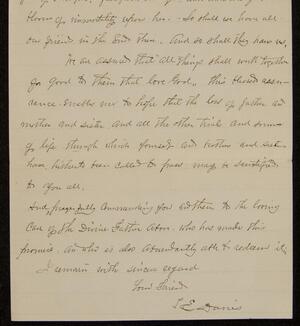 bloom of immortality upon him. So shall we have all
our friends in the End than. And so shall they have us.
We are assured that all things shall work together
for good to them that love God. This blessed assu-
rance Enables me to hope that the loss of father and
mother and sister and all the other trials and sorrows
of life through which yourself and brothers and sisters
have hitherto been called to pass may be sanctified
to you all.
And prayerfully commending you and them to the loving
Care of the Divine Father above, who has made this
promise, and who is also abundantly able to redeem it,
I remain with sincere regard
Your Friend
E Davis